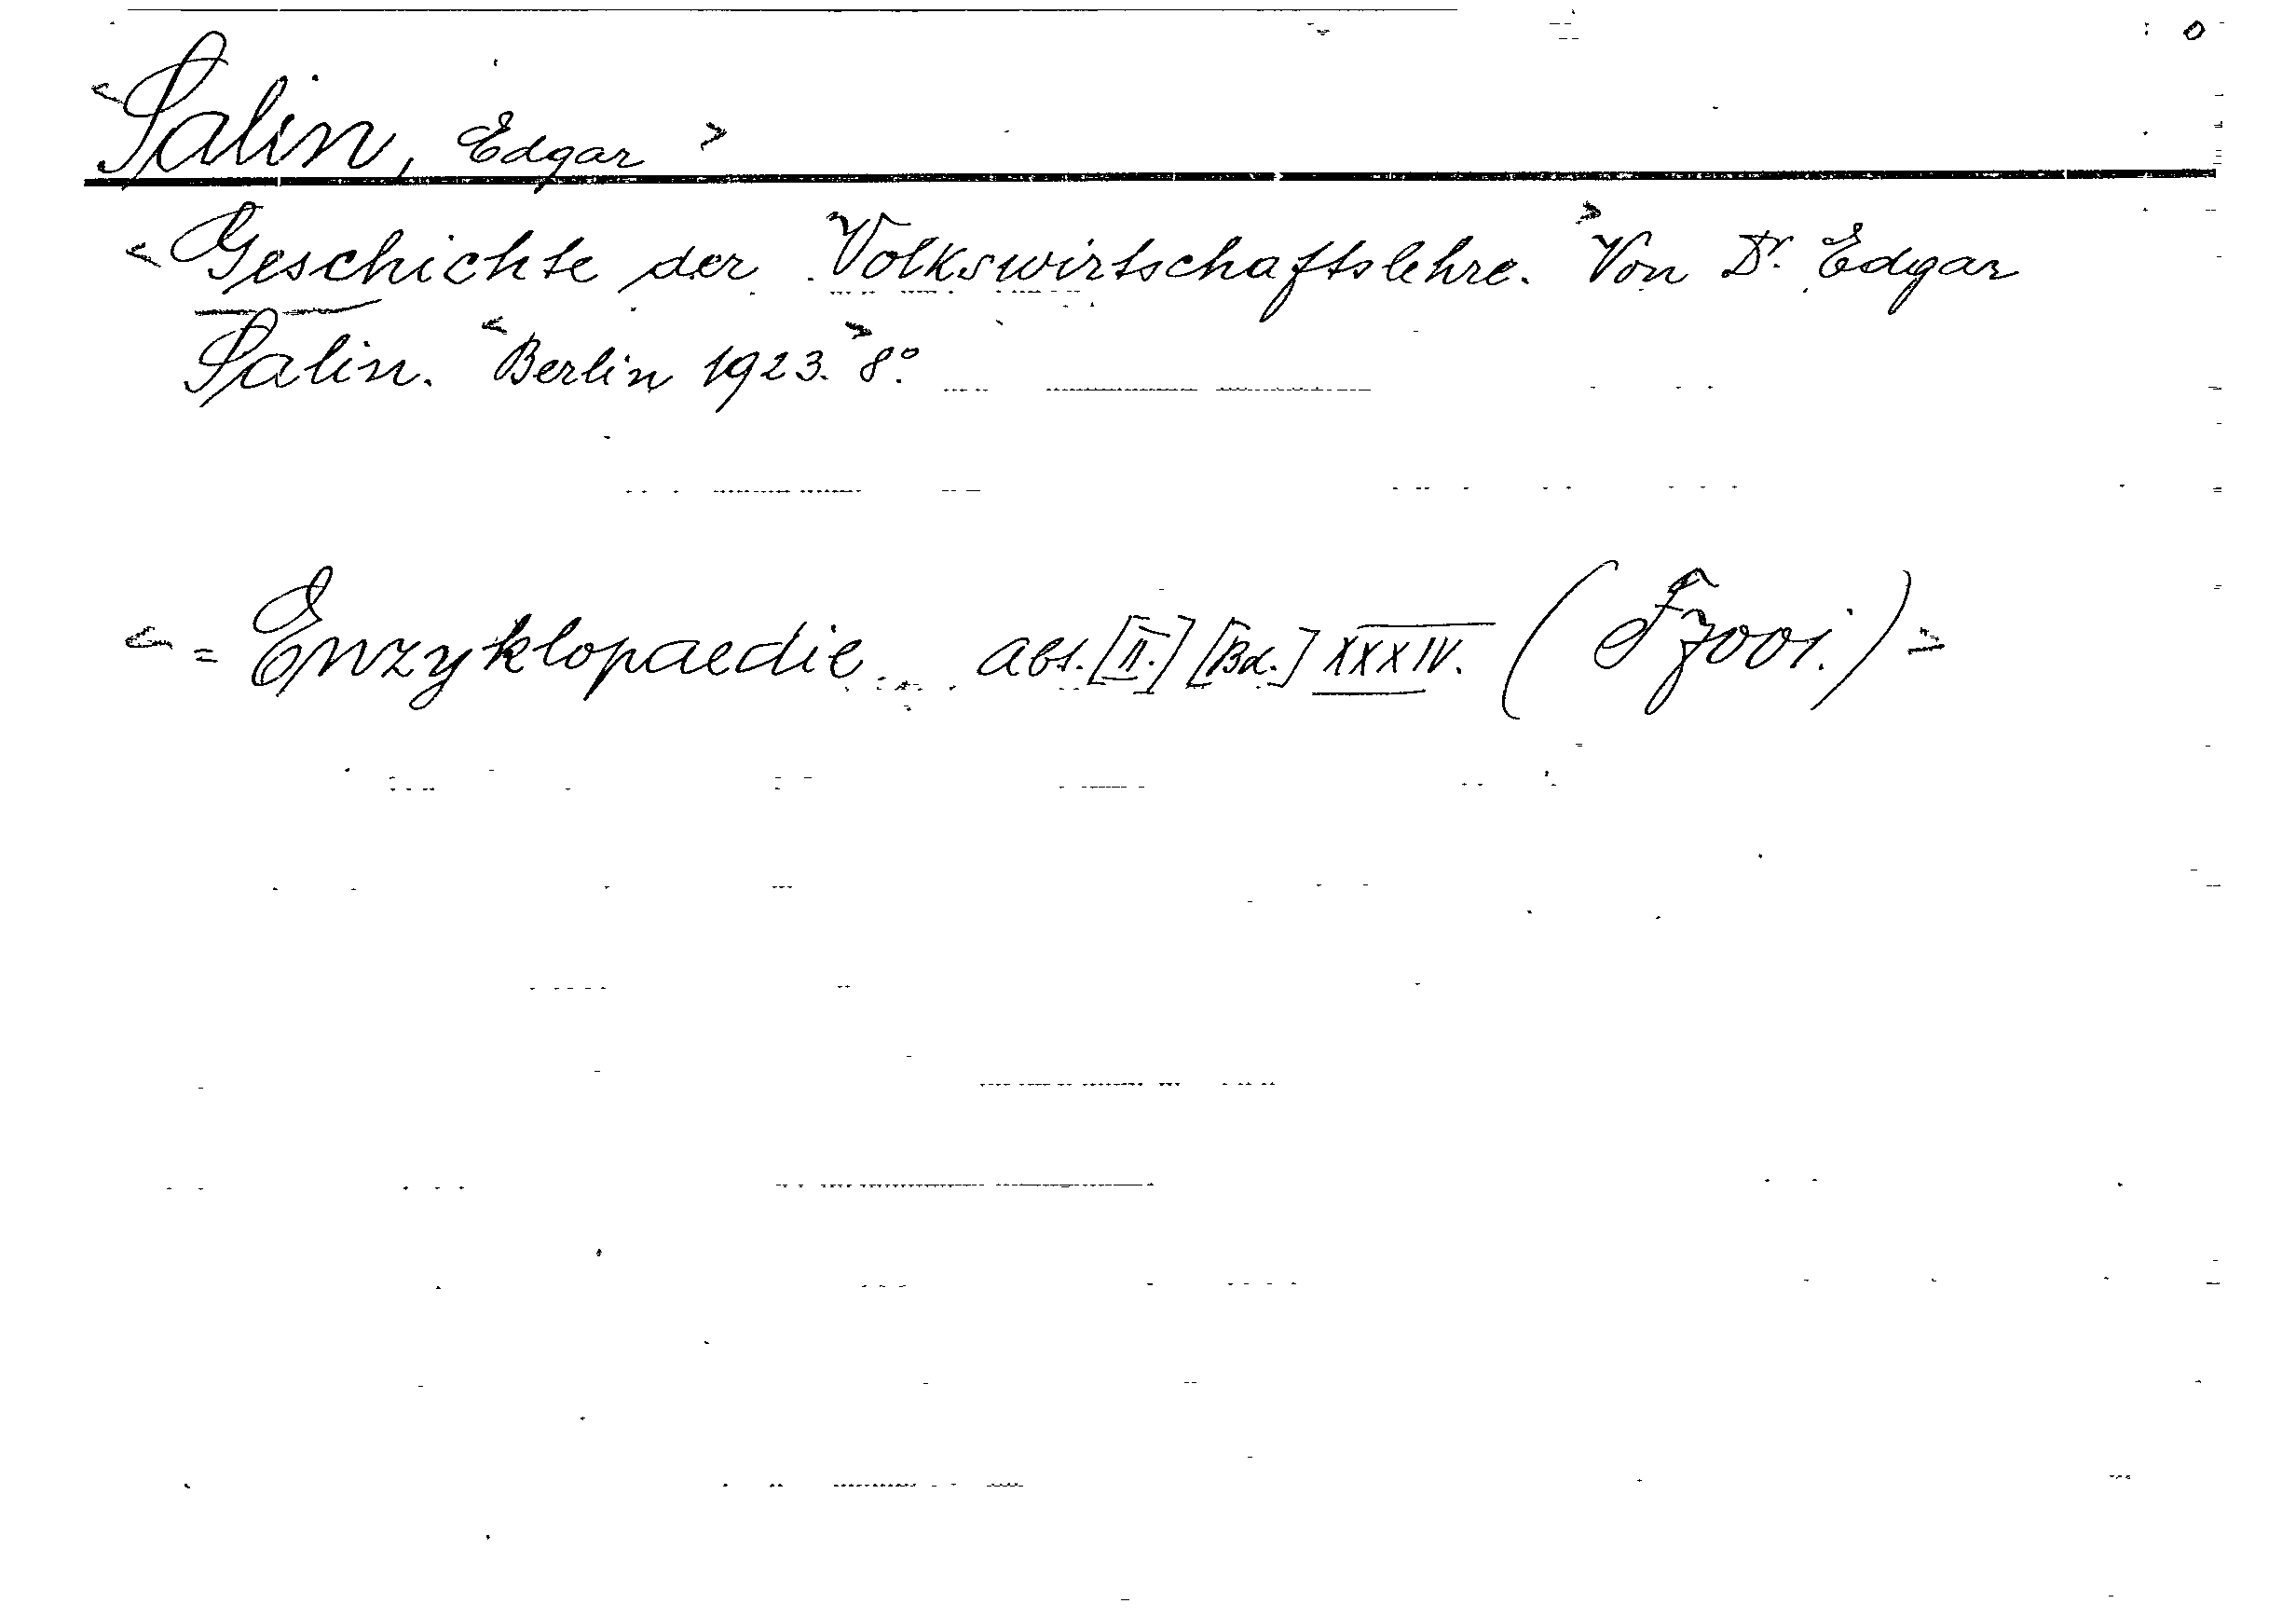 <Salin, Edgar>
<Geschichte der Volkswirtschaftslehre.> Von Dr. Edgar
Salin. <Berlin 1923.> 8°.
<= Enzyklopaedie abt. [II.] [Bd.] XXXIV.